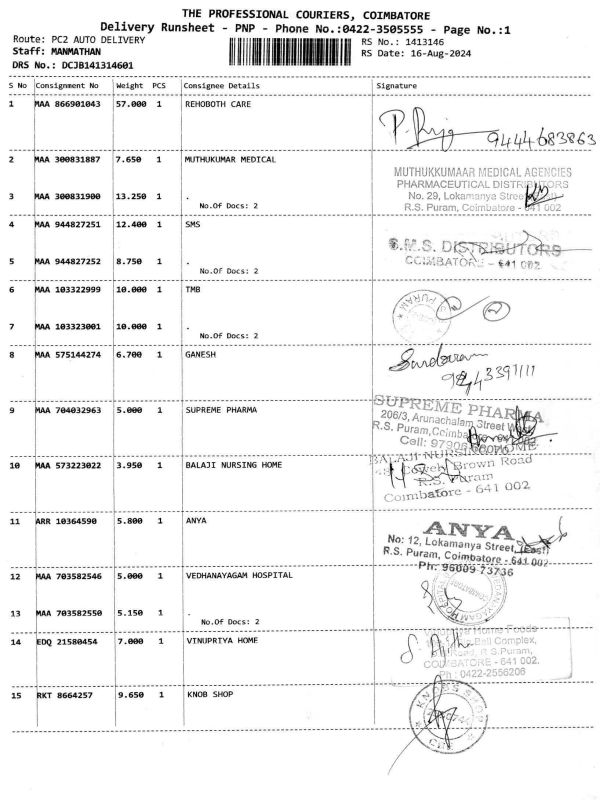 THE PROFESSIONAL COURIERS, COIMBATORE
Delivery Runsheet - PNP - Phone No.:0422-3505555 - Page No.:1
Route: PC2 AUTO DELIVERY
RS No.: 1413146
Staff: MANMATHAN
RS Date: 16-Aug-2024
DRS No.: DCJB141314601
S No Consignment No Weight PCS Consignee Details Signature
1 MAA 866901043 57.000 1 REHOBOTH CARE
9444683863
2 MAA 300831887 7.650 1 MUTHUKUMAR MEDICAL
MUTHUKKUMAAR MEDICAL AGENCIES
PHARMACEUTICAL DISTRIBUTORS
3 MAA 300831900 13.250 1 .
No. 29, Lokamanya Street
No.Of Docs: 2
R.S. Puram, Coimbatore - 641 002
4 MAA 944827251 12.400 1 SMS
S.M.S. DISTRIBUTORS
COIMBATORE - 641 002
5 MAA 944827252 8.750 1 .
No.Of Docs: 2
6 MAA 103322999 10.000 1 TMB
7 MAA 103323001 10.000 1 .
No.Of Docs: 2
8 MAA 575144274 6.700 1 GANESH
9 MAA 704032963 5.000 1 SUPREME PHARMA
SUPREME PHARMA
206/3, Arunachalam Street West
R.S. Puram, Coimbatore
Cell:
10 MAA 573223022 3.950 1 BALAJI NURSING HOME
BALAJI NURSING HOME
Cowely Brown Road
R.S. Puram
Coimbatore - 641 002
11 ARR 10364590 5.800 1 ANYA
ANYA
No: 12, Lokamanya Street, (East)
R.S. Puram, Coimbatore - 641 002
Ph: 96009 73736
12 MAA 703582546 5.000 1 VEDHANAYAGAM HOSPITAL
13 MAA 703582550 5.150 1 .
No.Of Docs: 2
14 EDQ 21580454 7.000 1 VINUPRIYA HOME
Home Foods
Bell Complex,
Road, R.S.Puram,
COIMBATORE - 641 002.
Ph : 0422-2556206
15 RKT 8664257 9.650 1 KNOB SHOP